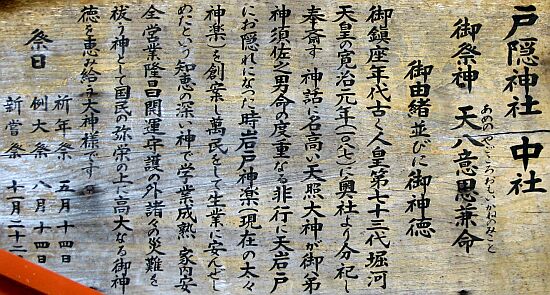 戸隠神社 中社
御祭神 天八意思兼命
あめのやごころおもいかねのみこと
御由緒並びに御神徳
御鎮座年代古く人皇第七十三代堀河
天皇の寛治元年(一〇八七)に奥社より分祀し
奉斎す 神話に名高い天照大神が御弟
神須佐之男命の度重なる非行に天岩戸
にお隠れになった時岩戸神楽(現在の太々
神楽)を創案し萬民をして生業に安んぜし
めたという知恵の深い神で学業成熟 家内安
全 営業隆昌開運守護の外諸々の災難を
祓う神として国民の弥栄の上に高大なる御神
徳を恵み給う大神様です
祭日
祈年祭 五月十四日
例大祭 八月十四日
新嘗祭 十一月二十三